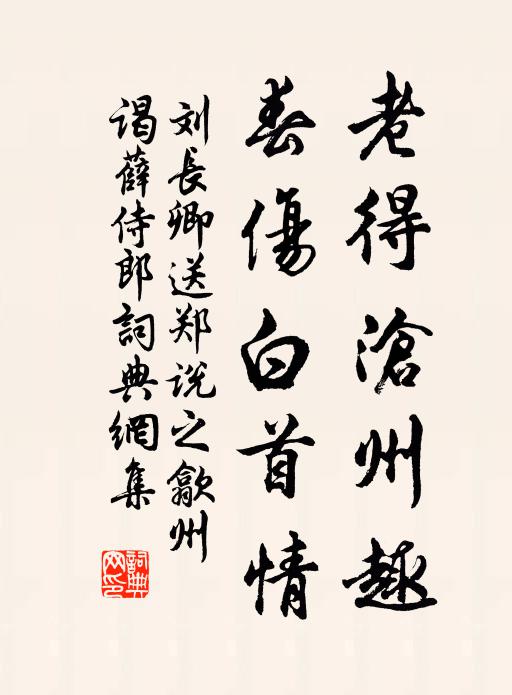 老得滄州趣
春傷白首情
刘長卿送郑説之歙州
謁薛侍郎詞典網集
詞典
网印